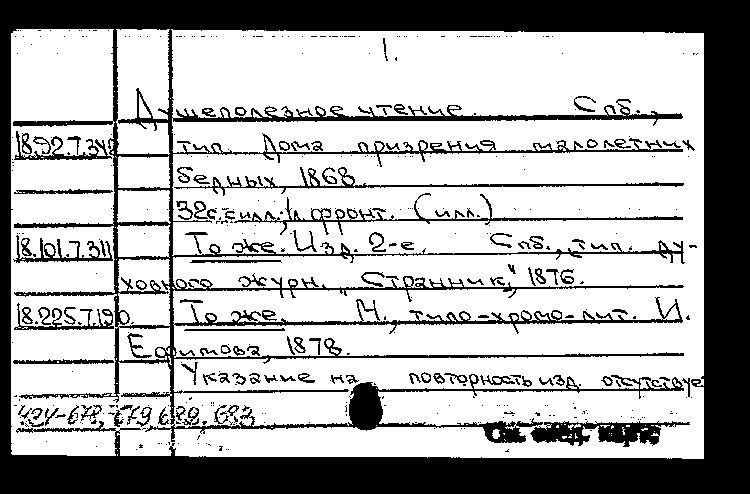 1.
Душеполезное чтение. Спб.,
18.92.7.342 тип. Дома призрения малолетних
бедных, 1868.
32с. с илл.; 1л. фронт. (илл.)
18.101.7.311 То же. Изд. 2-е. Спб., тип. ду-
ховного журн. „Странник“, 1876.
18.225.7.190 То же. М., типо-хромо-лит. И.
Ефимова, 1878.
Указание на повторность изд. отсутствует
См. след. карт.